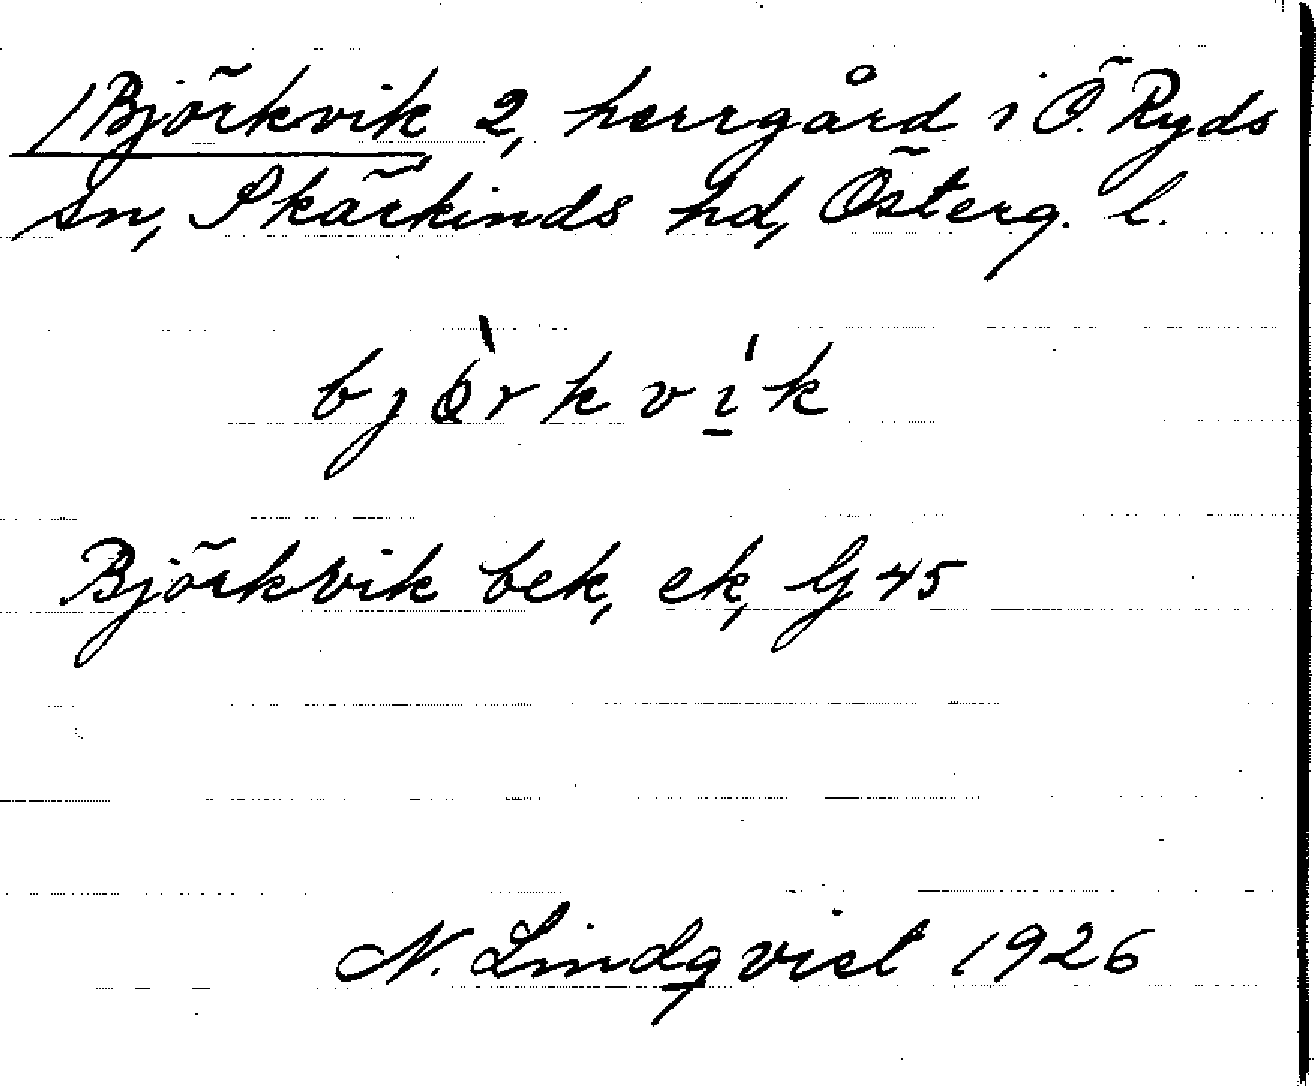 /Björkvik 2, herrgård i Ö. Ryds
sn, Skärkinds hd, Österg. l.
bjö̀rkví̲k
Björkvik bek, ek, G 45
N. Lindqvist 1926